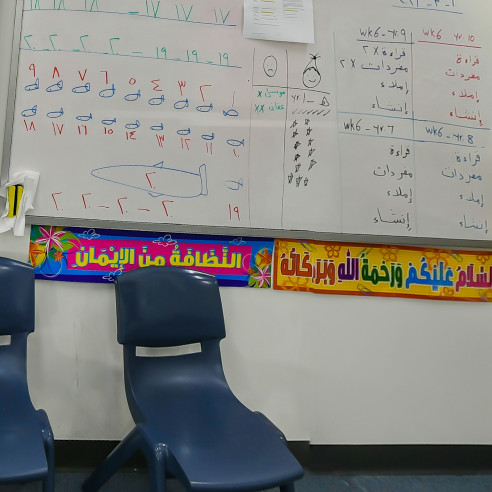 ١٧ ١٧ ١٧
٢٠ ٢٠ ٢٠ ٢٠ - ١٩ - ١٩ - ١٩
٩ ٨ ٧ ٦ ٥ ٤ ٣ ٢ ١
١٨ ١٧ ١٦ ١٥ ١٤ ١٣ ١٢ ١١ ١٠
٢٠
٢٠ - ٢٠ - ٢٠ - ٢٠ ١٩
xx
wk6 - yr 9
قراءة x ٢
مفردات x ٢
إملاء
إنشاء
yr 10
قراءة
مفردات
إملاء
إنشاء
wk6 - yr 7
قراءة
مفردات
إملاء
إنشاء
wk6 - yr 8
قراءة
مفردات
إملاء
إنشاء
النَّظَافَةُ مِنَ الإِيْمَانِ
السَّلَامُ عَلَيْكُمْ وَرَحْمَةُ اللهِ وَبَرَكَاتُهُ